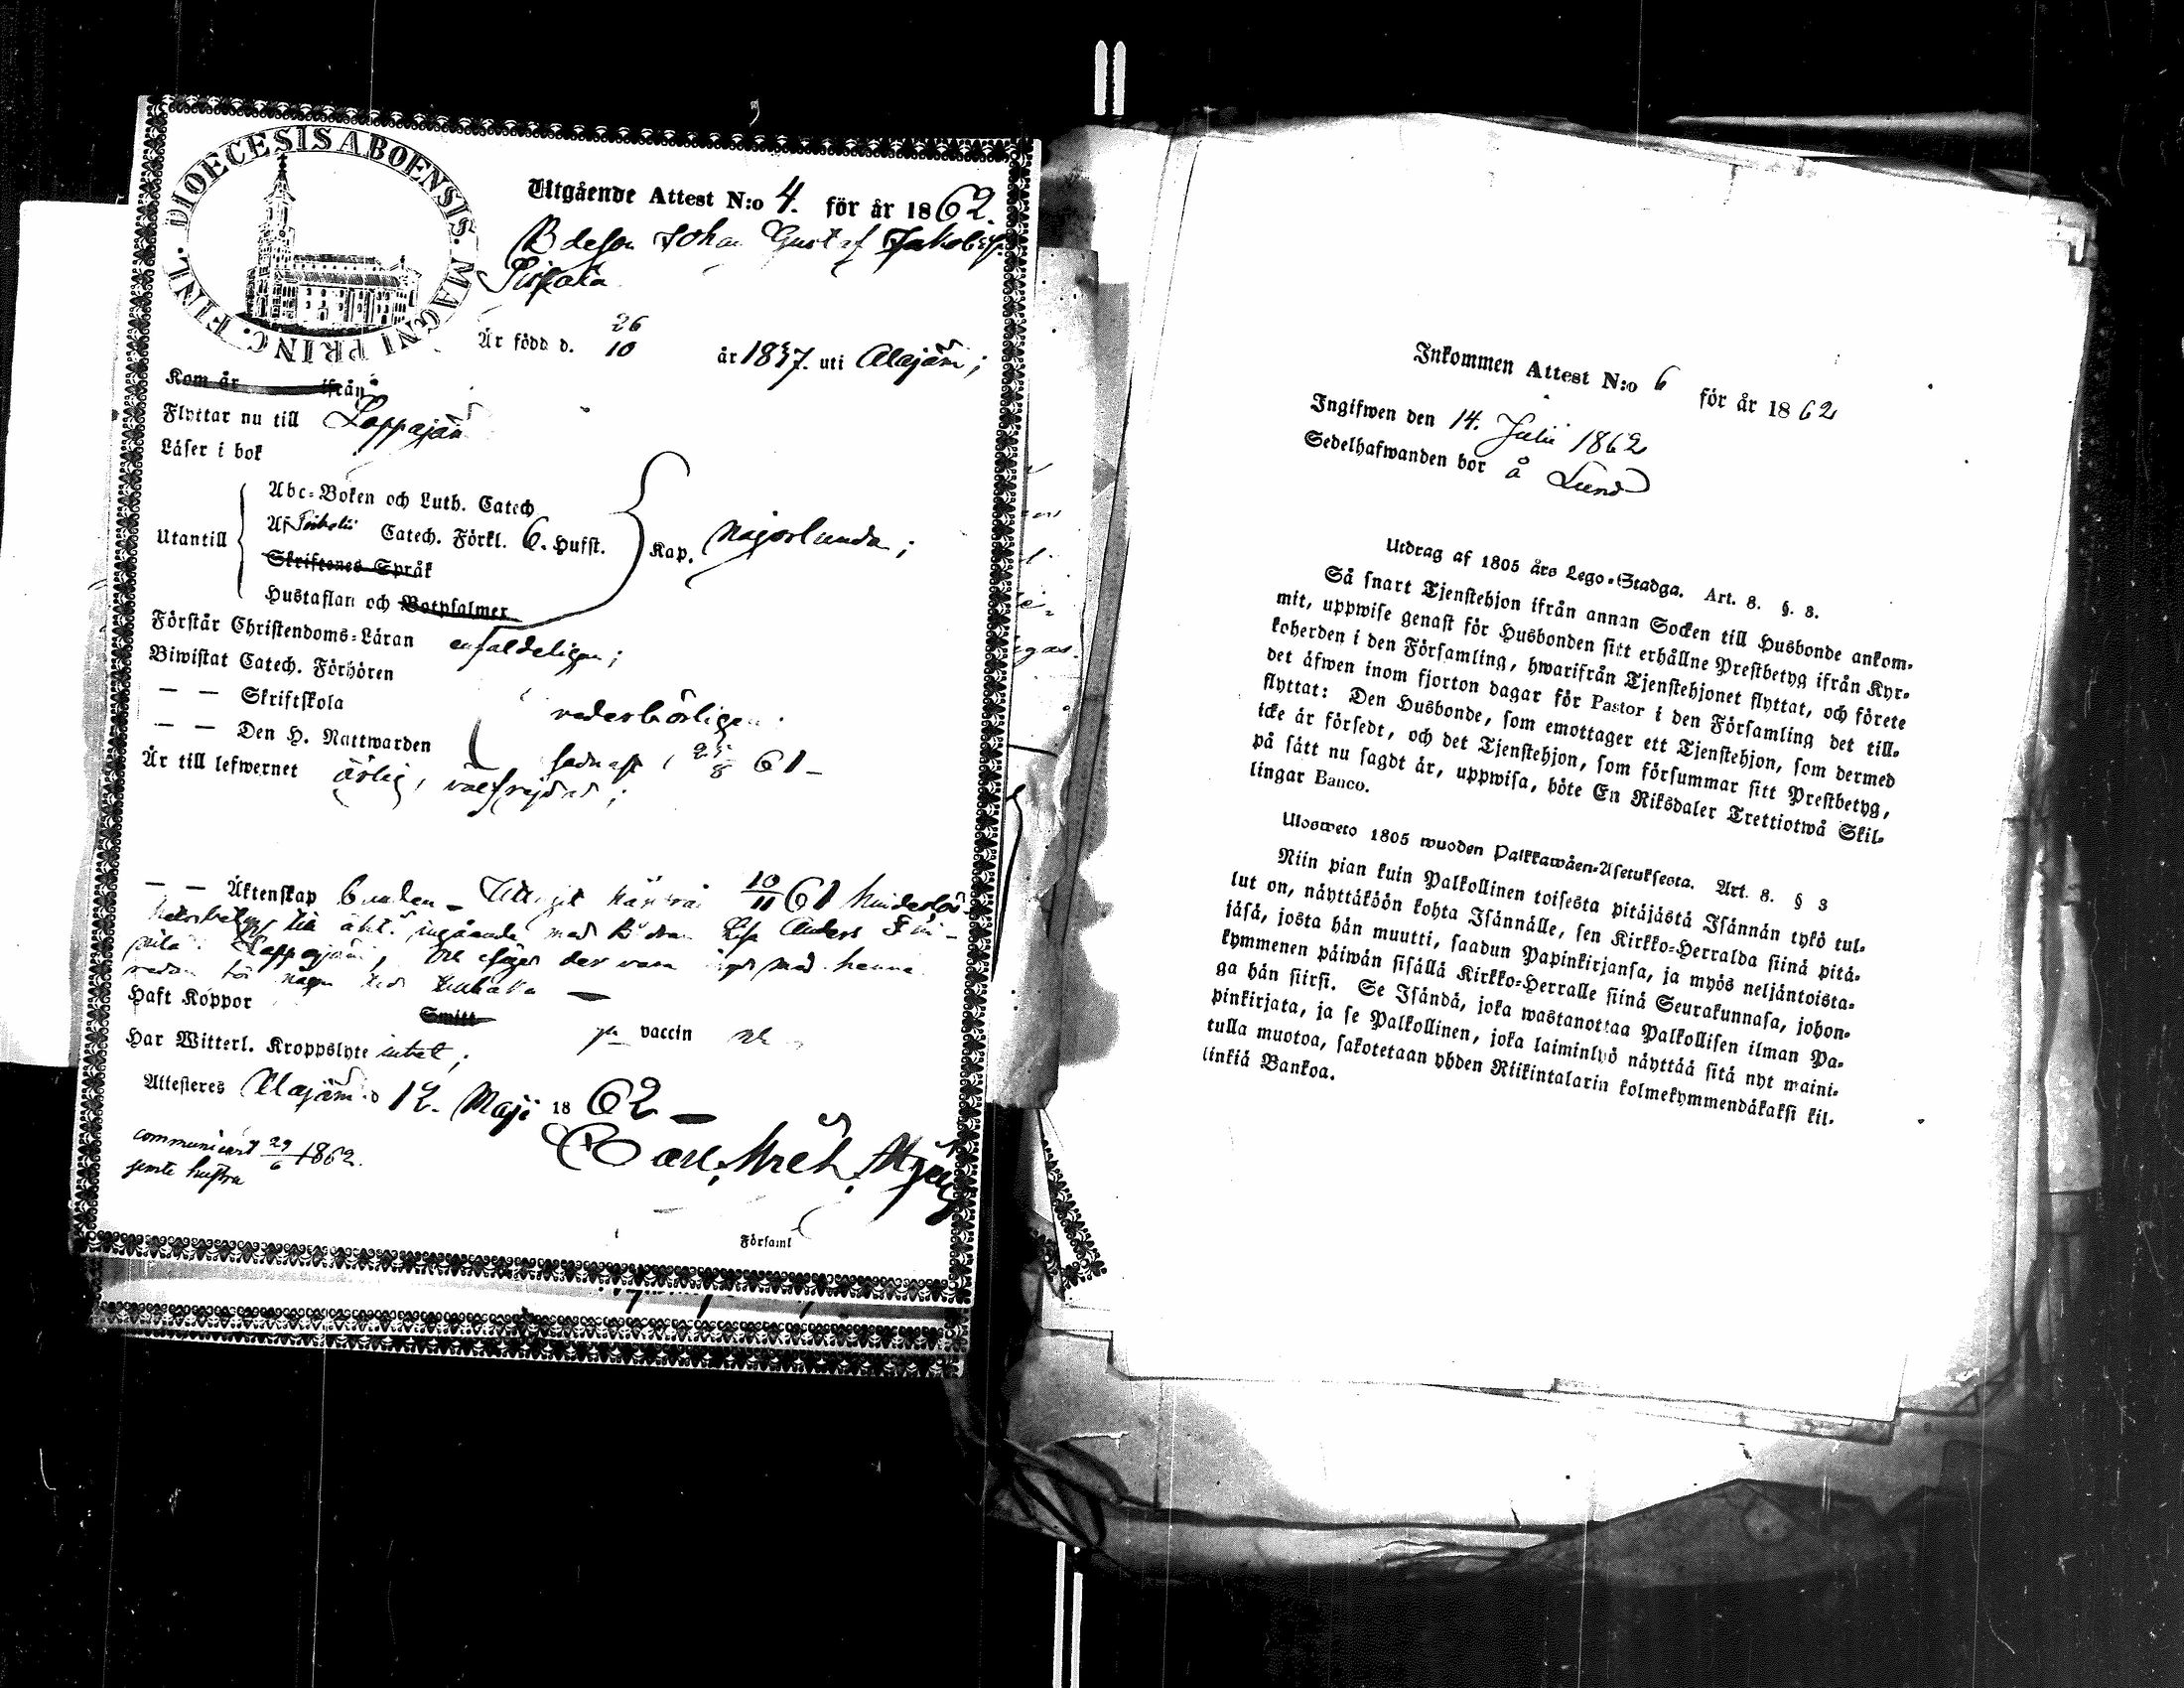 DIOECESIS ABOENSIS. MAGNI PRINC. FINL.
Utgående Attest N:o 4. för år 1862.
Johan Gustaf
Är född d. 26/10 år 1837. uti Alajärvi;
Kom år ifrån
Flyttar nu till Lappajärvi
Läser i bok
Utantill
Abc-Boken och Luth. Catech.
Af Catech. Förkl. 6. Hufst.
Kap. någorlunda;
Skriftenes Språk
Hustaflan och Botpsalmer
Förstår Christendoms-Läran enfaldeligen;
Biwistat Catech. Förhören
— — Skriftskola vederbörligen
— — Den H. Nattwarden 61 —
Är till lefwernet ärlig, välfrejdad;
— — Äktenskap 10/11 61
ingående med Anders
Lappajärvi, der vara med henne
Haft Koppor Smitt ja vaccin
Har Witterl. Kroppslyte intet;
Attesteres Alajärvi d 12. Maji 1862 —
Carl
communicerat 29/6 1862.
jemte hustru
Församl
Inkommen Attest N:o 6 för år 1862
Ingifwen den 14. Julii 1862
Sedelhafwanden bor å Lund
Utdrag af 1805 års Lego-Stadga. Art. 8. §. 8.
Så snart Tjenstehjon ifrån annan Socken till Husbonde ankom-
mit, uppwise genast för Husbonden sitt erhållne Prestbetyg ifrån Kyr-
koherden i den Församling, hwarifrån Tjenstehjonet flyttat, och förete
det äfwen inom fjorton dagar för Pastor i den Församling det till-
flyttat: Den Husbonde, som emottager ett Tjenstehjon, som dermed
icke är försedt, och det Tjenstehjon, som försummar sitt Prestbetyg,
på sätt nu sagdt är, uppwisa, böte En Riksdaler Trettiotwå Skil-
lingar Banco.
Ulosweto 1805 wuoden Palkkawäen-Asetuksesta. Art. 8. § 8
Niin pian kuin Palkollinen toisesta pitäjästä Isännän tykö tul-
lut on, näyttäköön kohta Isännälle, sen Kirkko-Herralda siinä pitä-
jäsä, josta hän muutti, saadun Papinkirjansa, ja myös neljäntoista-
kymmenen päiwän sisällä Kirkko-Herralle siinä Seurakunnasa, johon-
ga hän siirsi. Se Isändä, joka wastanottaa Palkollisen ilman Pa-
pinkirjata, ja se Palkollinen, joka laiminlyö näyttää sitä nyt maini-
tulla muotoa, sakotetaan yhden Riikintalarin kolmekymmendäkaksi kil-
linkiä Bankoa.